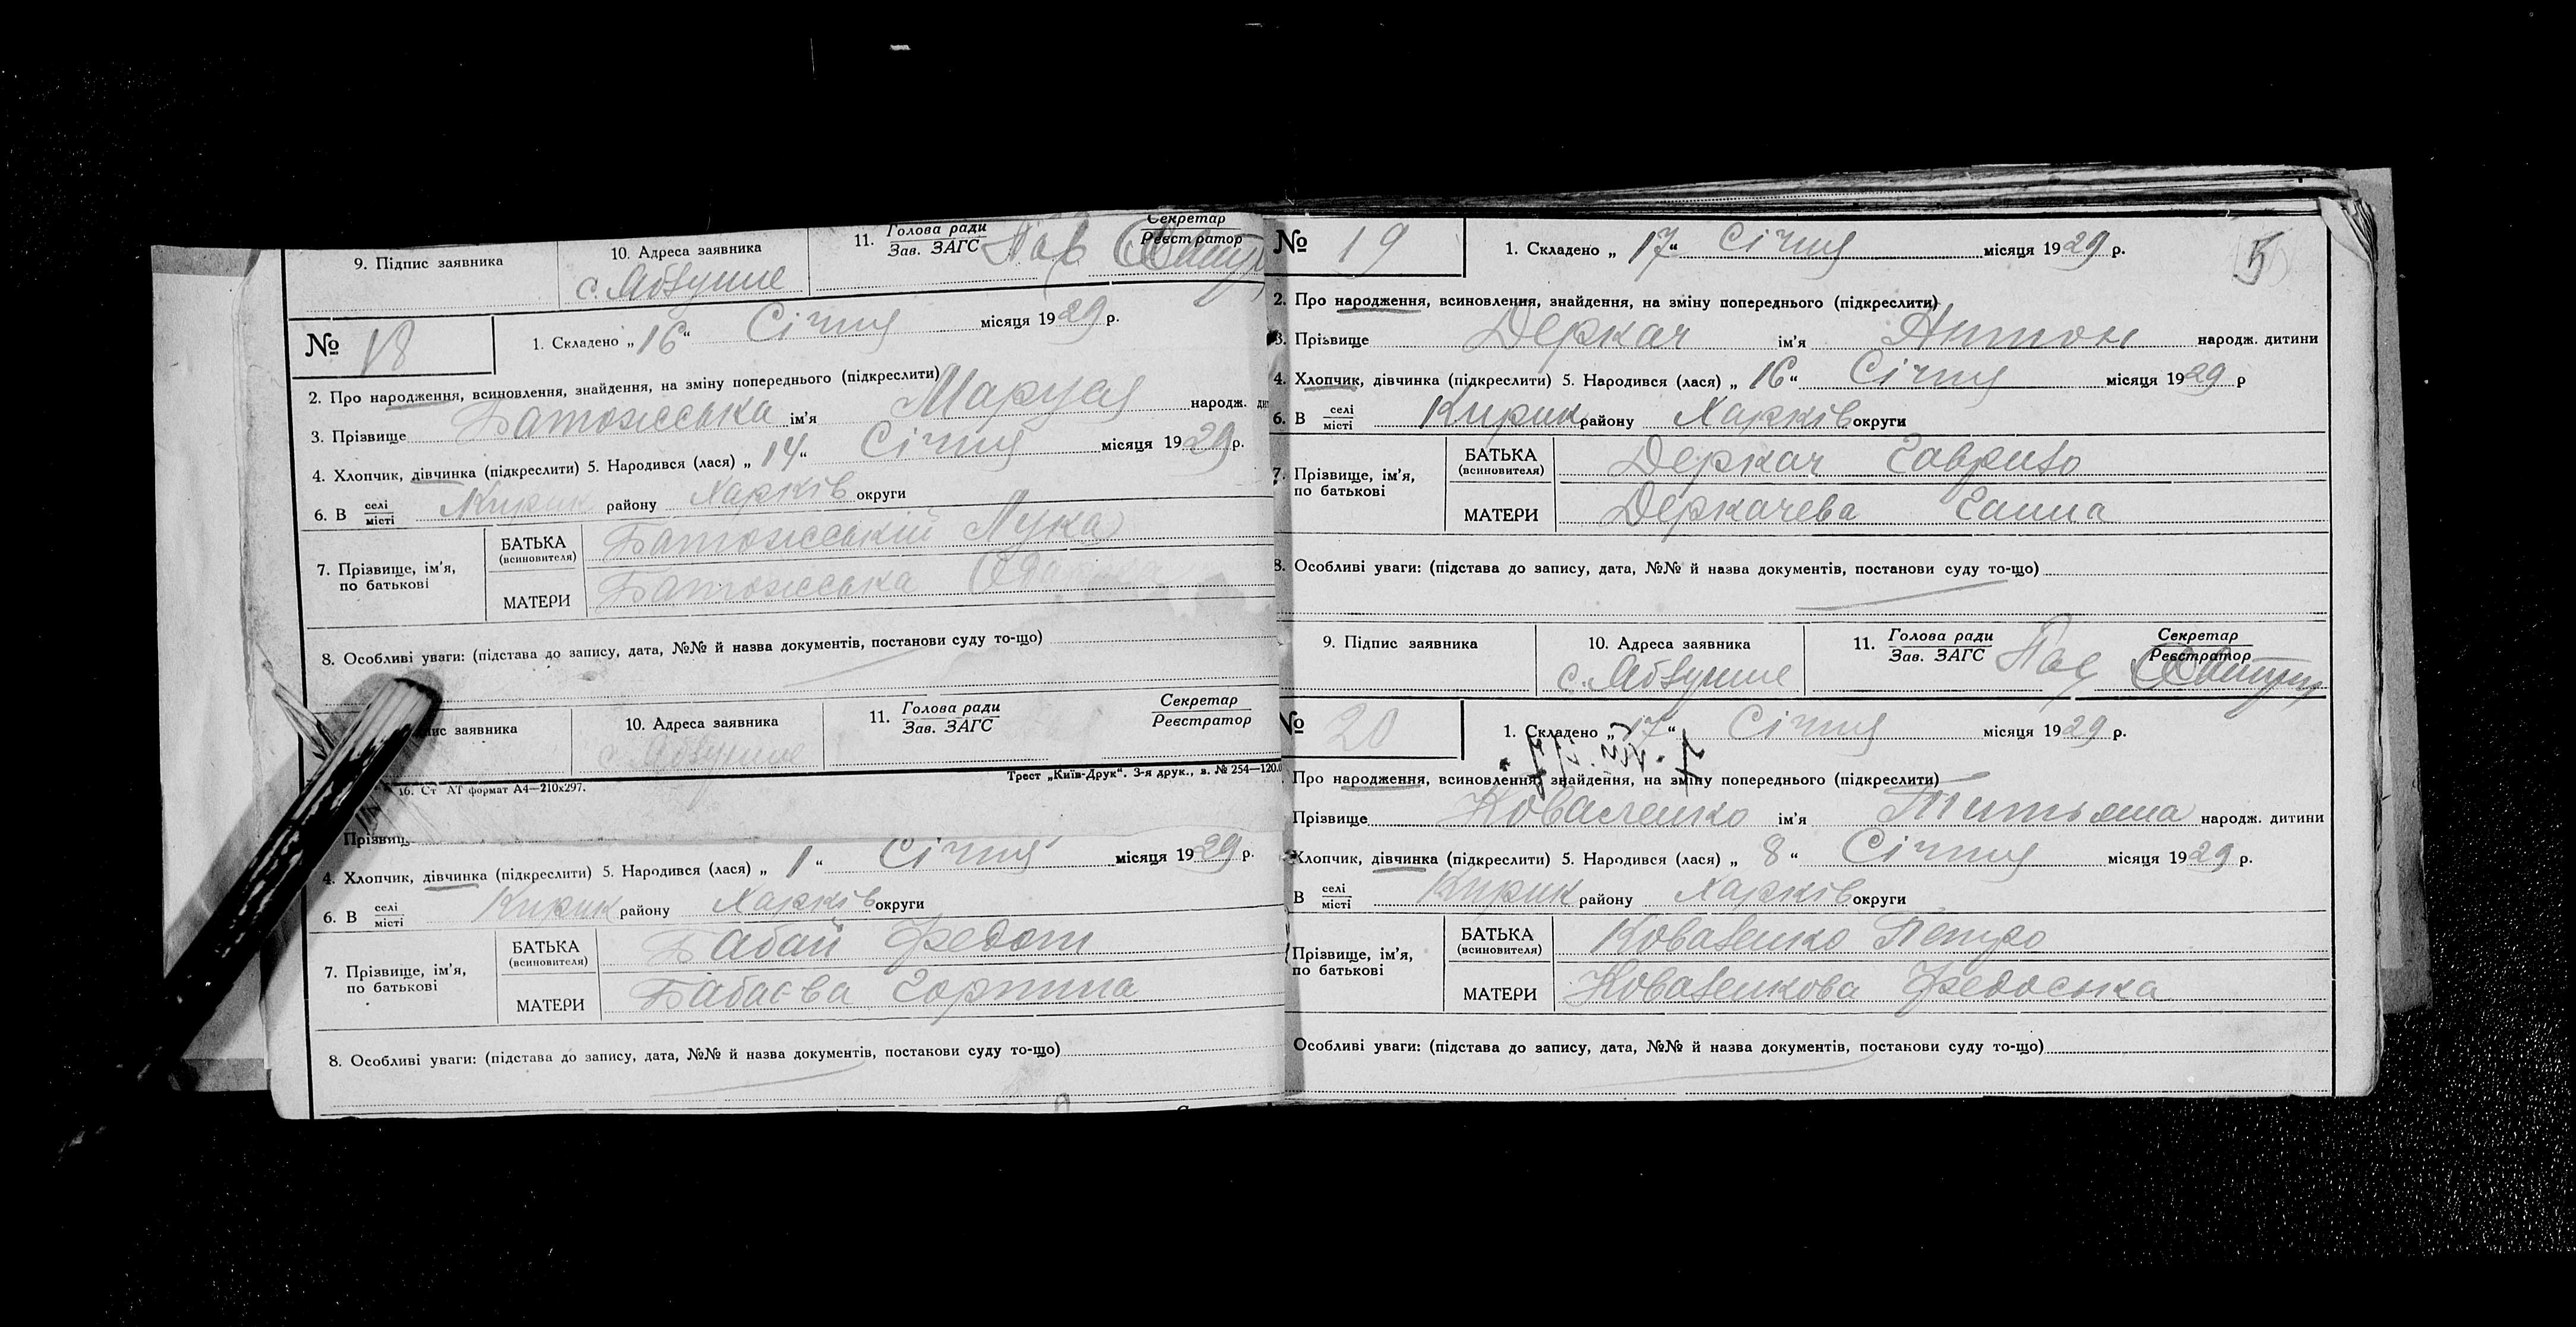 9. Підпис заявника 10. Адреса заявника 11. Голова ради Секретар
Зав. ЗАГС Реєстратор
с. Яблучне
№ 18 1. Складено „ 16 “ Січня місяця 1929 р.
2. Про народження, всиновлення, знайдення, на зміну попереднього (підкреслити)
3. Прізвище Батожська ім'я Маруся народж.
4. Хлопчик, дівчинка (підкреслити) 5. Народився (лася) „ 14 “ Січня місяця 1929 р.
6. В селі місті Кирик району Харків округи
7. Прізвище, ім'я, по батькові
БАТЬКА (всиновителя) Батожській Лука
МАТЕРИ Батожська
8. Особливі уваги: (підстава до запису, дата, №№ й назва документів, постанови суду то-що)
заявника 10. Адреса заявника 11. Голова ради Секретар
Зав. ЗАГС Реєстратор
с. Яблучне
Трест „Київ-Друк“. 3-я друк., в. № 254—120.0
16. Ст АТ формат А4—210х297.
Прізвищ
4. Хлопчик, дівчинка (підкреслити) 5. Народився (лася) „ 1 “ Січня місяця 1929 р.
6. В селі місті Кирик району Харків округи
7. Прізвище, ім'я, по батькові
БАТЬКА (всиновителя) Бабай Федот
МАТЕРИ Бабаєва Горпина
8. Особливі уваги: (підстава до запису, дата, №№ й назва документів, постанови суду то-що)
№ 19 1. Складено „ 17 “ Січня місяця 1929 р. 5
2. Про народження, всиновлення, знайдення, на зміну попереднього (підкреслити)
3. Прізвище Деркач ім'я Антон народж. дитини
4. Хлопчик, дівчинка (підкреслити) 5. Народився (лася) „ 16 “ Січня місяця 1929 р
6. В селі місті Кирик району Харків округи
7. Прізвище, ім'я, по батькові
БАТЬКА (всиновителя) Деркач Гаврило
МАТЕРИ Деркачева Ганна
8. Особливі уваги: (підстава до запису, дата, №№ й назва документів, постанови суду то-що)
9. Підпис заявника 10. Адреса заявника 11. Голова ради Секретар
Зав. ЗАГС Реєстратор
с. Яблучне
№ 20 1. Складено „ 17 “ Січня місяця 1929 р.
Про народження, всиновлення, знайдення, на зміну попереднього (підкреслити)
Прізвище Коваленко ім'я Титьяна народж. дитини
Хлопчик, дівчинка (підкреслити) 5. Народився (лася) „ 8 “ Січня місяця 1929 р.
В селі місті Кирик району Харків округи
Прізвище, ім'я, по батькові
БАТЬКА (всиновителя) Коваленко Петро
МАТЕРИ Коваленкова Федоська
Особливі уваги: (підстава до запису, дата, №№ й назва документів, постанови суду то-що)